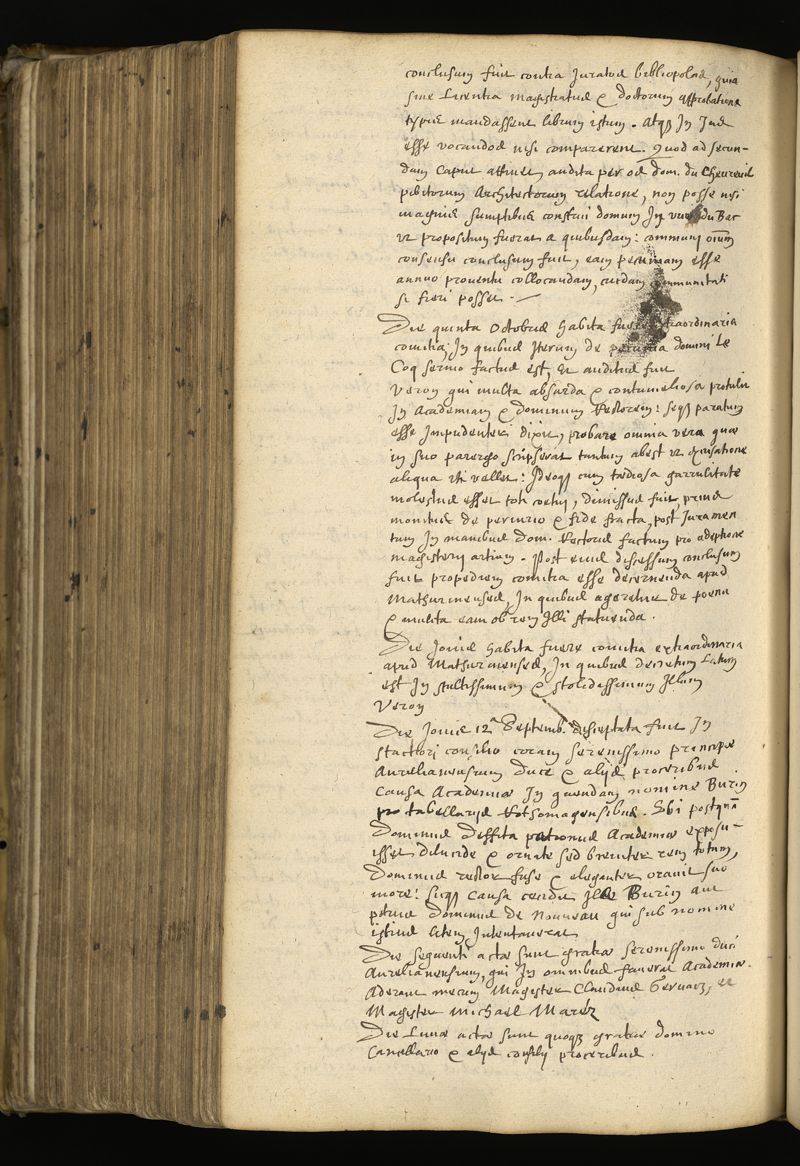 conclusum fuit contra Juratos bibliopolas, quia
sine Licentia magistratus & doctorum approbatione
typis mandassent librum istum. Atqz In Jus
esse vocandos nisi comparerent. Quod ad secun-
dum caput attinet, audita per os dom. du Cheureuil
peritorum Architectorum relatione, non posse nisi
magnis sumptibus construi domum In vico du Bac
vt propositum fuerat a quibusdam: communi oium
consensu conclusum fuit, eam pecuniam esse
annuo prouentu collocandam, cuidam communitati
si fieri posset.
Die quinta Octobris habita fuere extraordinaria
comitia, In quibus Iterum de pecunia domini Le
Coq sermo factus est, et auditus fuit
Veron qui multa absurda & contumeliosa protulit
In Academiam & dominum Rectorem: seqz paratum
esse Impudenter dixit, probare omnia vera quae
in suo parergo scripserat tantum abest vt excusatione
aliqua uti vellet: Ideoqz cum taediosa garrulitate
molestus esset toti coetui, dimissus fuit, prius
monitus de periurio & fide fracta, post Juramen
tum In manibus dom. Rectoris factum pro adeptione
magisterij artium. Post eius discessum conclusum
fuit propediem comitia esse decernenda apud
Mathurinenses, In quibus ageretur de poena
& mulcta eam ob rem Illi statuenda.
Die Jouis habita fuere comitia extraordinaria
apud Mathurinenses, In quibus decretum Latum
est In stultissimum & stolidissimum Illum
Veron
Die Jouis 12a Septemb. disceptata fuit In
sanctiori consilio coram serenissimo principe
Aurelianensium duce & alijs proceribus
Causa Academiae In quendam nomine Burin
pro tabellarijs Rotomagensibus. Vbi postquam
Dominus Deffita patronus Academiae exposu-
isset dilucide & ornate sed breuiter rem totam,
Dominus rector fuse & eleganter orauit suo
more: suqz causa cecidit Ille Burin aut
potius Dominus de Nouueau qui sub nomine
istius litem Intentauerat
Die sequenti actae sunt gratiae serenissimo duci
Aurelianensium, qui In omnibus fauerat Academiae.
Aderant mecum Magister Claudius Geruais, et
Magister michael Marés
Die Lunae actae sunt quoqz gratiae domino
Cancellario & alijs consilij proceribus.